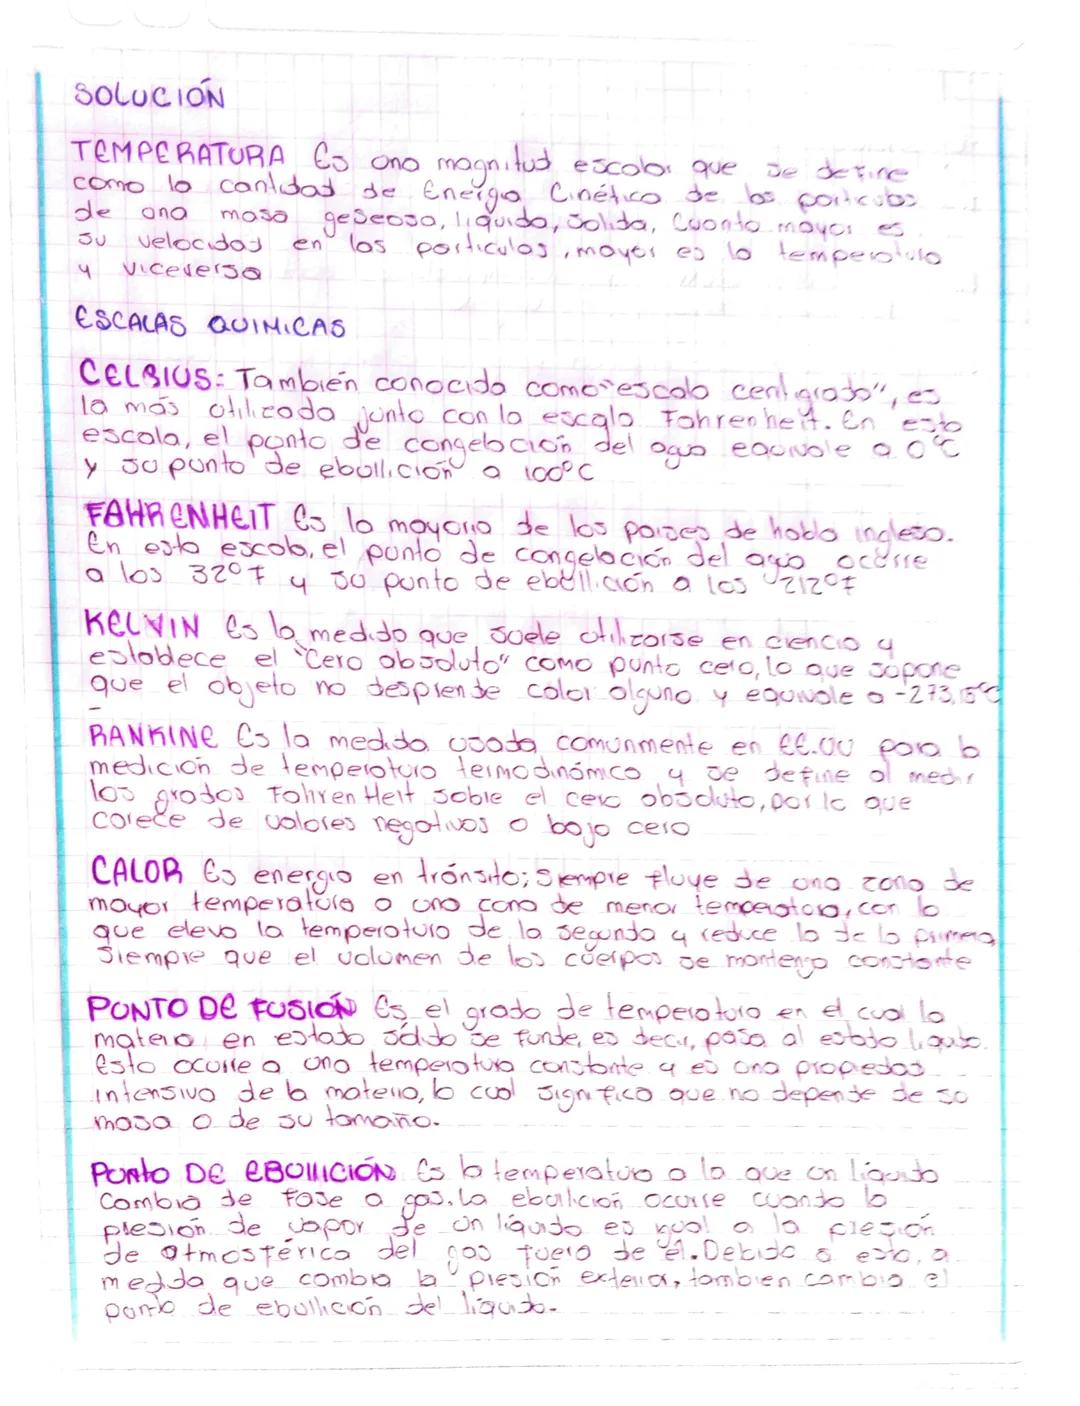 SOLUCIÓN
TEMPERATURA Es una magnitud escalar que se define
como la cantidad de Energia Cinética de las particulas
de una masa geseosa, liquida, Solida, Cuanto mayor es
su velocidad en las particulas, mayor es la temperatura
y viceversa
ESCALAS QUIMICAS
CELSIUS: También conocida como "escala centigrado", es
la más utilizada junto con la escala Fahrenheit. En esta
escala, el punto de congelación del agua equivale a 0°C
y su punto de ebullición a 100°C
FAHRENHEIT Es la mayoria de los paises de habla inglesa.
En esta escala, el punto de congelación del agua ocurre
a los 32°F y su punto de ebullición a los 212°F
KELVIN Es la medida que suele utilizarse en ciencia y
establece el "Cero absoluto" como punto cero, lo que supone
que el objeto no desprende calor alguno y equivale a -273,15°C
RANKINE Es la medida usada comúnmente en EE.UU para la
medición de temperatura termodinámica y se define al medir
los grados Fahrenheit sobre el cero absoluto, por lo que
carece de valores negativos o bajo cero
CALOR Es energia en tránsito; Siempre fluye de una zona de
mayor temperatura a una zona de menor temperatura, con lo
que eleva la temperatura de la segunda y reduce la de la primera,
Siempre que el volumen de los cuerpos se mantenga constante
PUNTO DE FUSIÓN Es el grado de temperatura en el cual la
materia en estado sólido se funde, es decir, pasa al estado liquido.
Esto ocurre a una temperatura constante y es una propiedad
intensiva de la materia, lo cual significa que no depende de su
masa o de su tamaño.
PUNTO DE EBULLICIÓN Es la temperatura a la que un líquido
Cambia de fase a gas. La ebulición ocurre cuando la
presión de vapor de un líquido es igual a la presión
de atmosférica del gas fuera de él. Debido a esto, a
medida que cambia la presión exterior, tambien cambia el
punto de ebullición del líquido.